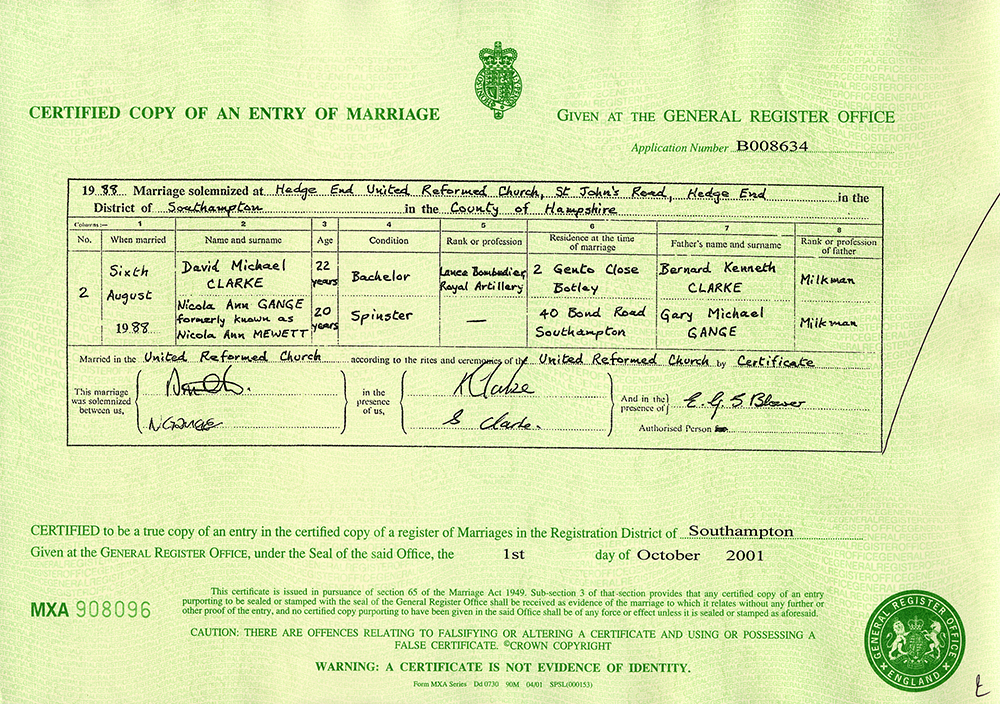 CERTIFIED COPY OF AN ENTRY OF MARRIAGE
GIVEN AT THE GENERAL REGISTER OFFICE
Application Number B008634
1988 Marriage solemnized at Hedge End United Reformed Church, St John's Road, Hedge End in the
District of Southampton in the County of Hampshire
Columns:— 1 2 3 4 5 6 7 8
No. When married Name and surname Age Condition Rank or profession Residence at the time of marriage Father's name and surname Rank or profession of father
2 Sixth August 1988
David Michael CLARKE 22 years Bachelor Lance Bombadier Royal Artillery 2 Gento Close Botley Bernard Kenneth CLARKE Milkman
Nicola Ann GANGE formerly known as Nicola Ann MEWETT 20 years Spinster — 40 Bond Road Southampton Gary Michael GANGE Milkman
Married in the United Reformed Church according to the rites and ceremonies of the United Reformed Church by Certificate
This marriage was solemnized between us, N Gange
in the presence of us, S Clarke.
And in the presence of E. G. S
Authorised Person
CERTIFIED to be a true copy of an entry in the certified copy of a register of Marriages in the Registration District of Southampton
Given at the GENERAL REGISTER OFFICE, under the Seal of the said Office, the 1st day of October 2001
MXA 908096
This certificate is issued in pursuance of section 65 of the Marriage Act 1949. Sub-section 3 of that-section provides that any certified copy of an entry
purporting to be sealed or stamped with the seal of the General Register Office shall be received as evidence of the marriage to which it relates without any further or
other proof of the entry, and no certified copy purporting to have been given in the said Office shall be of any force or effect unless it is sealed or stamped as aforesaid.
CAUTION: THERE ARE OFFENCES RELATING TO FALSIFYING OR ALTERING A CERTIFICATE AND USING OR POSSESSING A
FALSE CERTIFICATE. ©CROWN COPYRIGHT
WARNING: A CERTIFICATE IS NOT EVIDENCE OF IDENTITY.
Form MXA Series Dd 0730 90M 04/01 SPSL(000153)
GENERAL REGISTER OFFICE
ENGLAND